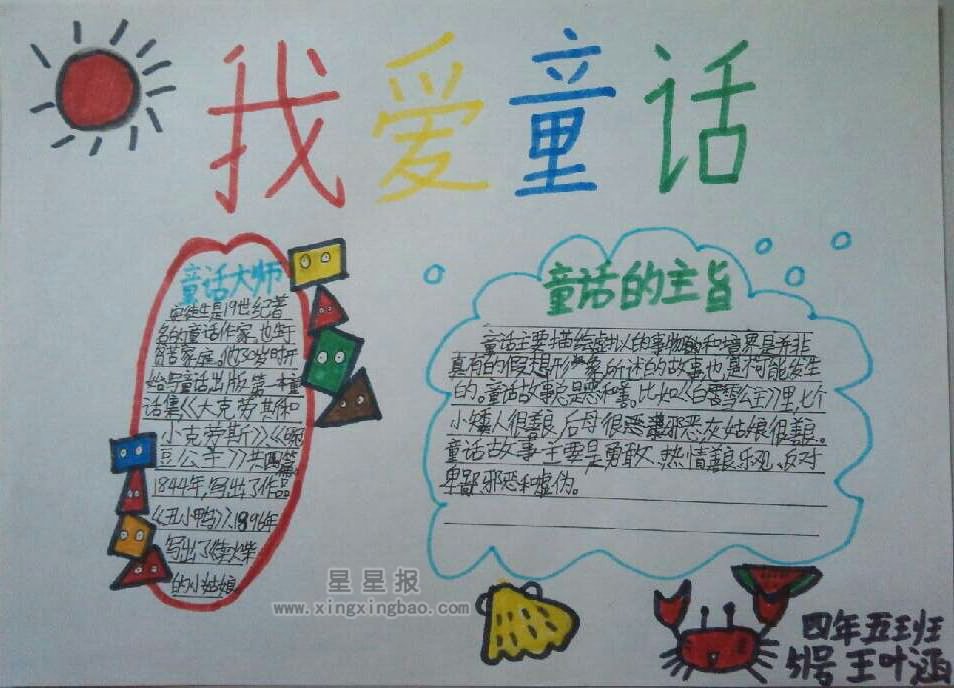 我爱童话
童话大师
安徒生是19世纪著
名的童话作家,也生于
贫苦家庭。他30岁时开
始写童话出版第一本童
话集《大克劳斯和
小克劳斯》《豌
豆公主》共四篇
1844年,写出了作品
《丑小鸭》、1896年
写出了《卖火柴
的小姑娘
童话的主旨
童话主要描绘虚拟的事物和境界是并非
真有的假想形象,所述的故事也是不可能发生
的。童话故事总是恶和善。比如《白雪公主》里,七个
小矮人很善良,后母很邪恶灰姑娘很善良。
童话故事主要是勇敢、热情善良乐观、反对
卑鄙邪恶和虚伪。
星星报
www.xingxingbao.com
四年五班
51号 王叶涵